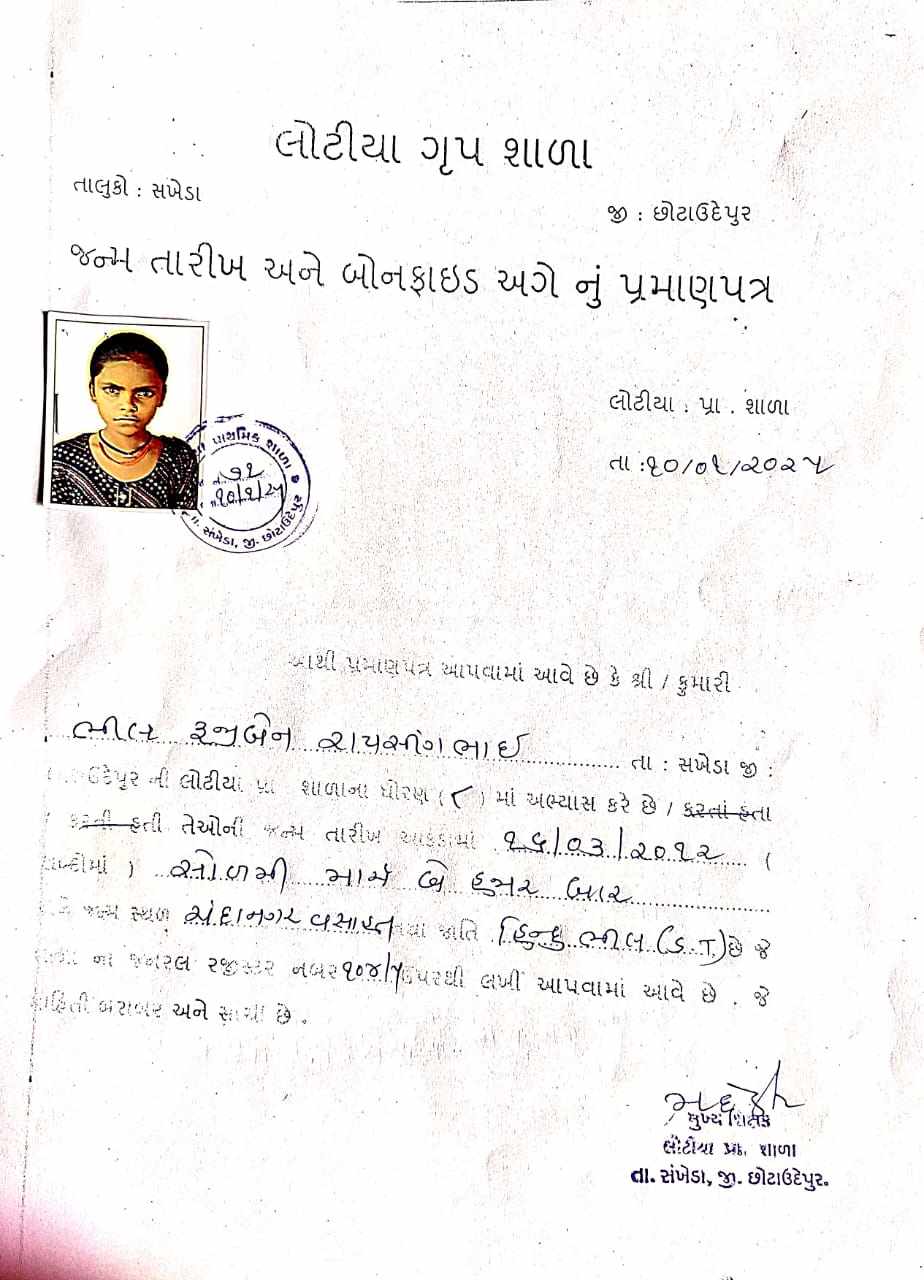 લોટીયા ગૃપ શાળા
તાલુકો : સંખેડા
જી : છોટાઉદેપુર
જન્મ તારીખ અને બોનફાઇડ અગે નું પ્રમાણપત્ર
લોટીયા . પ્રા . શાળા
તા :૧૦/૦૧/૨૦૨૫
પ્રાથમિક શાળા
૭૧
૧૦/૧/૨૫
તા. સંખેડા, જી. છોટાઉદેપુર
આથી પ્રમાણપત્ર આપવામાં આવે છે કે શ્રી / કુમારી
ભીલ રૂજીબેન રાયસીંગભાઈ તા : સંખેડા જી :
ઉદેપુર ની લોટીયા પ્રા શાળાના ધોરણ ( ૮ ) માં અભ્યાસ કરે છે / કરતાં હતા
/ કરતી હતી તેઓની જન્મ તારીખ આકડામાં ૧૬/૦૩/૨૦૧૨ (
શબ્દોમાં ) સોળમી માર્ચ બે હજાર બાર
જન્મ સ્થળ ચંદાનગર વસાહત તથા જાતિ હિન્દુ ભીલ (S.T.) છે જે
ના જનરલ રજીસ્ટર નબર ૧૦૪/૧ ઉપરથી લખી આપવામાં આવે છે . જે
માહિતી બરાબર અને સાચી છે .
મુખ્ય શિક્ષક
લોટીયા પ્રા. શાળા
તા. સંખેડા, જી. છોટાઉદેપુર.